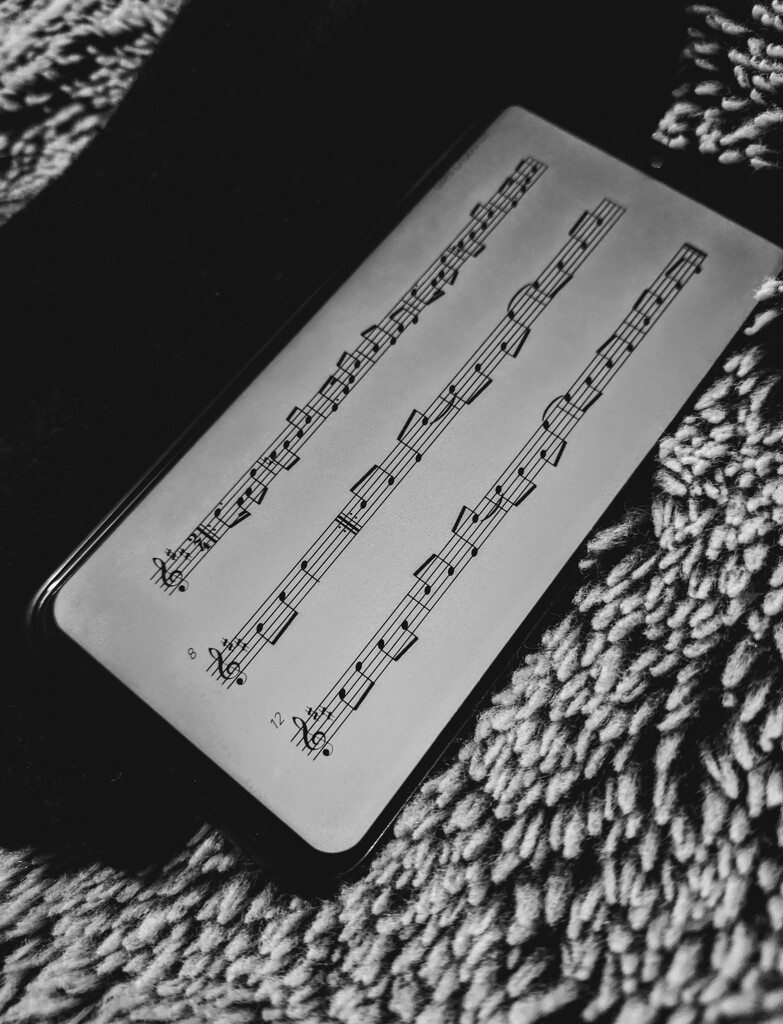 8
12